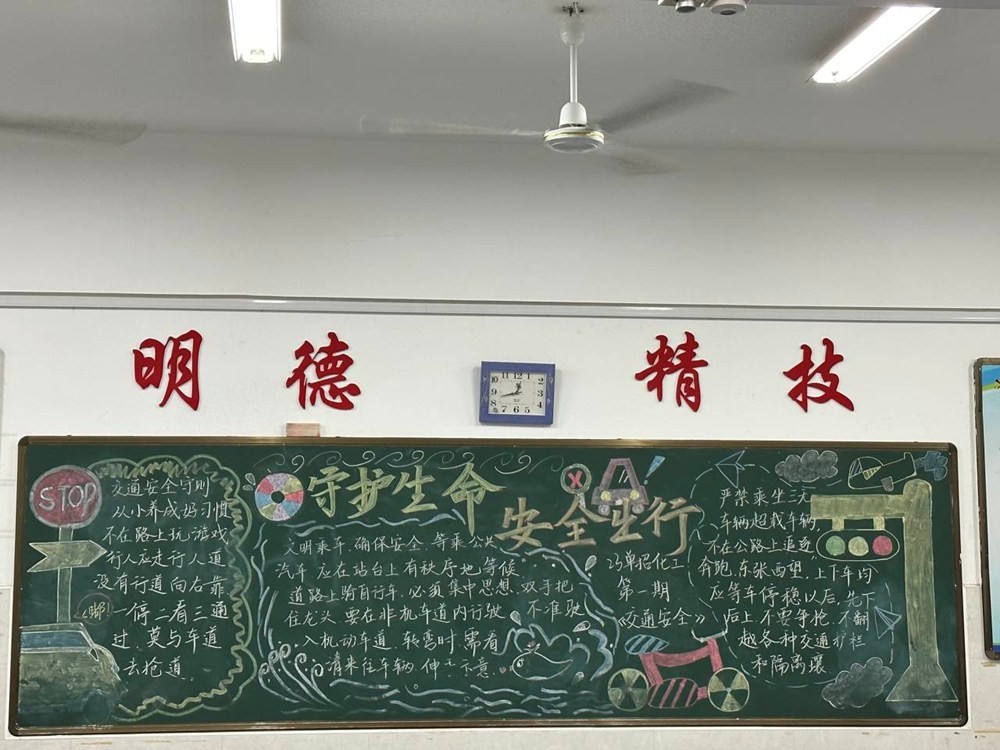 明德
精技
STOP
交通安全守则
从小养成好习惯
不在路上玩游戏
行人应走行人道
没有行道向右靠
一停二看三通
过,莫与车道
去抢道
嘟
守护生命
安全出行
文明乘车,确保安全,等乘公共
汽车,应在站台上有秩序地等候
道路上骑自行车,必须集中思想,双手把
住龙头,要在非机车道内行驶,不准驶
入机动车道,转弯时,需看
清来往车辆,伸手示意。
25单招化工
第一期
《交通安全》
严禁乘坐三无
车辆超载车辆
不在公路上追逐
奔跑,东张西望,上下车均
应等车停稳以后,先下
后上,不要争抢,不翻
越各种交通护栏
和隔离墩